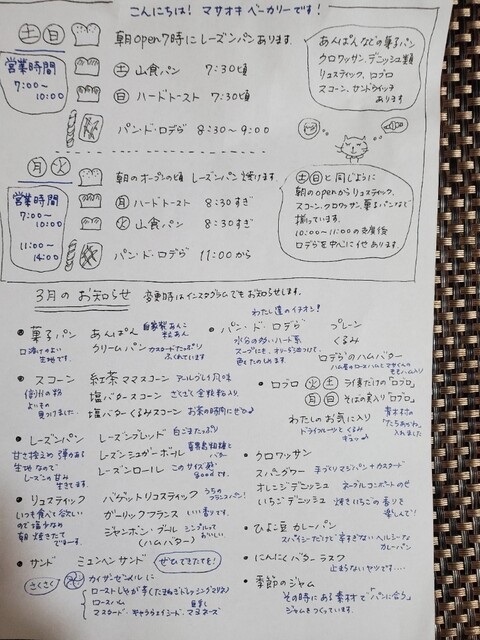 こんにちは! マサオキベーカリーです!
土 日 朝open7時にレーズンパンあります.
営業時間
7:00〜
10:00
土 山食パン 7:30頃
日 ハードトースト 7:30頃
パン・ド・ロデヴ 8:30〜9:00
あんぱんなどの菓子パン
クロワッサン、デニッシュ類
リュスティック、ロブロ
スコーン、サンドウィッチ
あります
月 火 朝のオープンの頃 レーズンパン焼けます.
営業時間
7:00〜
10:00
11:00〜
14:00
月 ハードトースト 8:30すぎ
火 山食パン 8:30すぎ
パン・ド・ロデヴ 11:00から
土 日 と同じように
朝のopenからリュスティック、
スコーン、クロワッサン、菓子パンなど
揃っています.
10:00〜11:00の支度後
ロデヴを中心に他あります
3月のお知らせ 変更時はインスタグラムでもお知らせします.
菓子パン
口溶けのよい
生地です.
あんぱん 自家製あんこ
クリームパン カスタードたっぷり
スコーン
信州の粉
よいもの
見つけました.
紅茶ママスコーン アールグレイ風味
塩バタースコーン さくさく 全粒粉入り
塩バターくるみスコーン お茶の時間にぜひ
レーズンパン
甘さ控えめ 弾力ある
生地なので
レーズンの甘み
レーズンブレッド 白ごまたっぷり
レーズンシュガーボール
レーズンロール このサイズ感
goodです.
リュスティック
いつも食べて欲しい
ので塩少なめ
朝焼きたて
バゲットリュスティック うちの
フランスパン!
ガーリックフランス いい香りです.
ジャンボン・ブール シンプルって
おいしい.
(ハムバター)
サンド ミュンヘンサンド ぜひできたてを!
さくさく カイザーゼンメルに
ローストしゃが芋(たまねぎドレッシングマリネ)
ロースハム
マスタード・キャラウェイシード・マヨネーズ
わたし達のイチオシ!
パン・ド・ロデヴ プレーン
水分の多いハード系
くるみ
ロデヴのハムバター
ロブロ 火 土 ライ麦だけの「ロブロ」
月 日 そばの実入り「ロブロ」
わたしのお気に入り
ドライフルーツとくるみ
ギュッ
入れました
クロワッサン
スパンダワー 手づくりマジパン+カスタード
オレンジデニッシュ ネーブルコンポートのせ
いちごデニッシュ 焼きいちごの香りを
楽しんで!
ひよこ豆カレーパン
スパイシーだけど辛すぎないヘルシーな
カレーパン
にんにくバターラスク
止まらないやつです....
季節のジャム
その時にある素材で「パンに合う」
ジャムをつくっています.